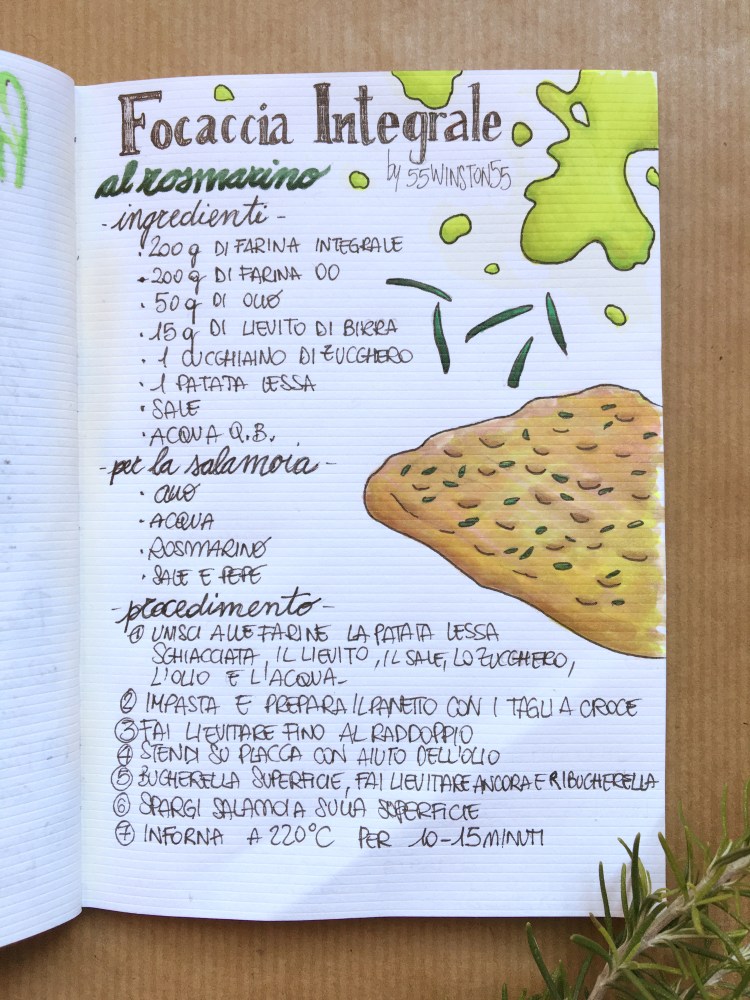 Focaccia Integrale
al rosmarino
by 55WINSTON55
- ingredienti -
· 200 g DI FARINA INTEGRALE
· 200 g DI FARINA 00
· 50 g DI OLIO
· 15 g DI LIEVITO DI BIRRA
· 1 CUCCHIAINO DI ZUCCHERO
· 1 PATATA LESSA
· SALE
· ACQUA Q.B.
- per la salamoia -
· OLIO
· ACQUA
· ROSMARINO
· SALE E PEPE
- procedimento -
① UNISCI ALLE FARINE LA PATATA LESSA
SCHIACCIATA, IL LIEVITO, IL SALE, LO ZUCCHERO,
L'OLIO E L'ACQUA-
② IMPASTA E PREPARA IL PANETTO CON I TAGLI A CROCE
③ FAI LIEVITARE FINO AL RADDOPPIO
④ STENDI SU PLACCA CON AIUTO DELL'OLIO
⑤ BUCHERELLA SUPERFICIE, FAI LIEVITARE ANCORA E RIBUCHERELLA
⑥ SPARGI SALAMOIA SULLA SUPERFICIE
⑦ INFORNA A 220°C PER 10-15 MINUTI